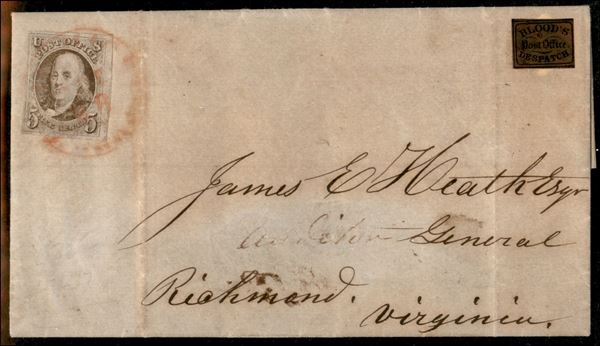 U S
POST OFFICE
5 FIVE CENTS 5
BLOOD'S
Post Office
DESPATCH
James E Heath Esqr
Auditor General
Richmond.
Virginia.